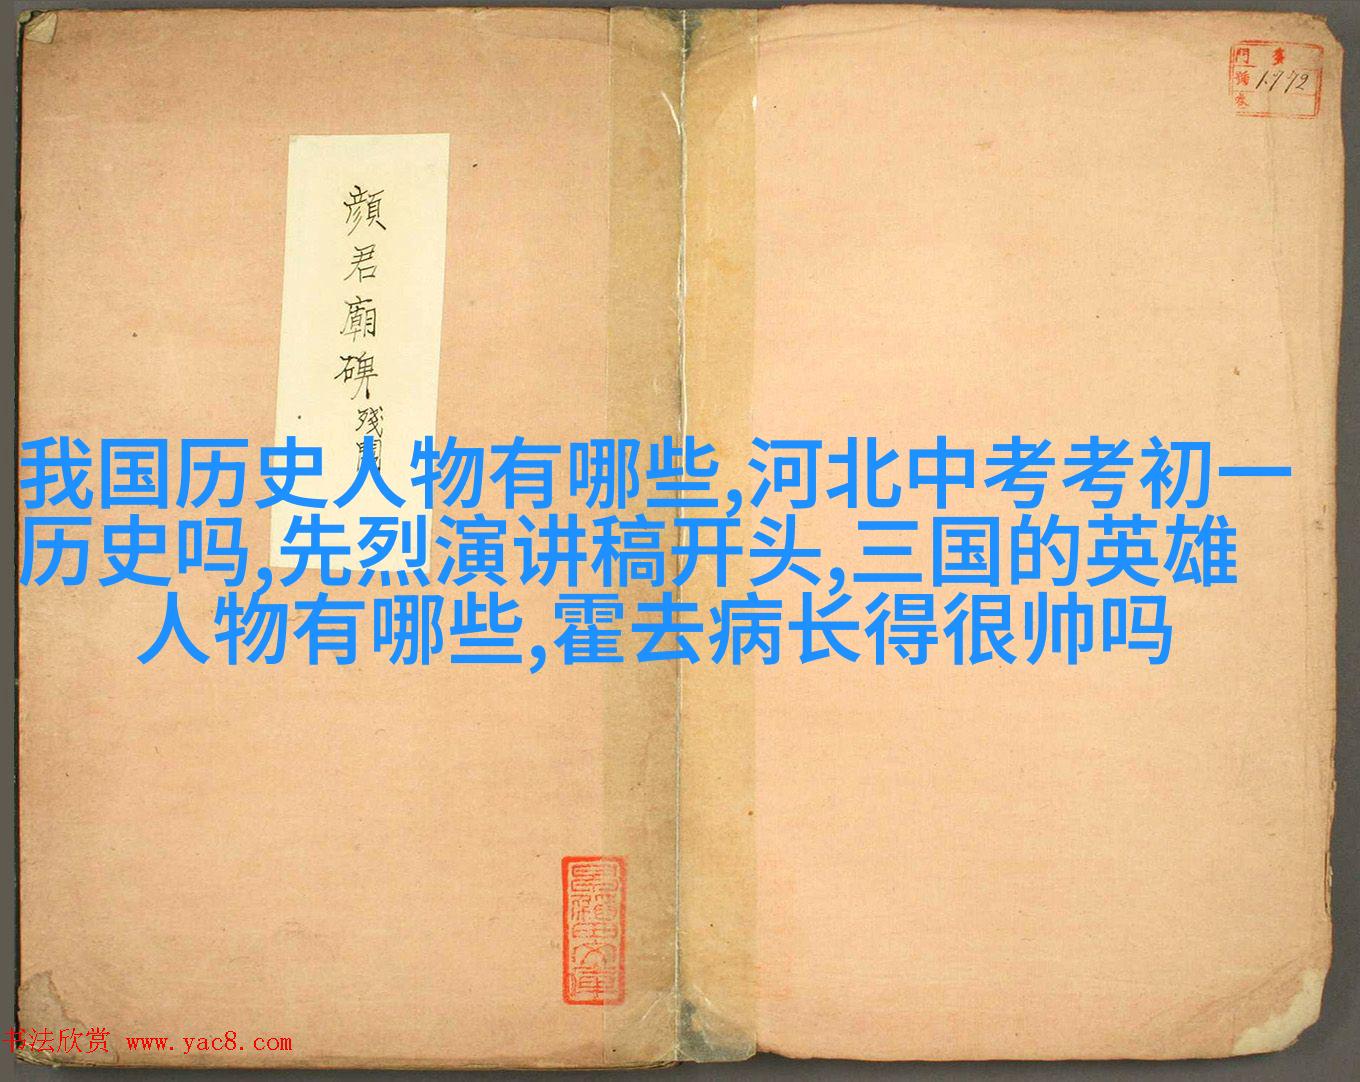 門  番
號 1772
巻
顔君廟碑残闕
我国历史人物有哪些,河北中考考初一
历史吗,先烈演讲稿开头,三国的英雄
人物有哪些,霍去病长得很帅吗
书法欣赏 www.yac8.com